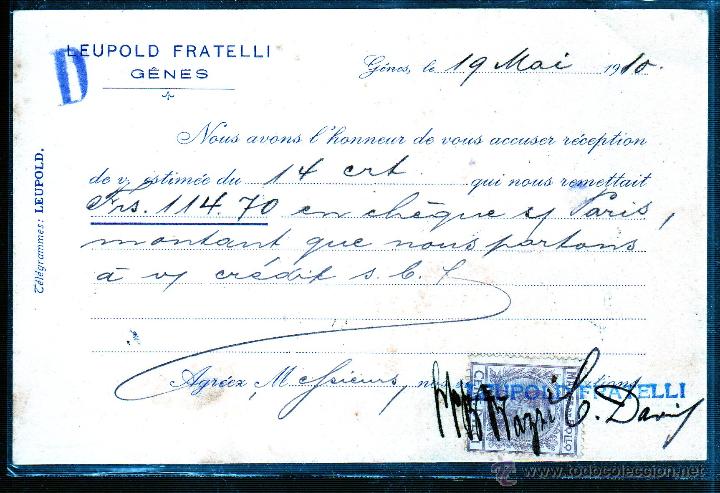 LEUPOLD FRATELLI
GÊNES
D
Gênes, le 19 Mai 1910.
Télégrammes: LEUPOLD.
Nous avons l'honneur de vous accuser réception
de v/ estimée du 14 crt. qui nous remettait
Frs. 114.70 en chèque s/ Paris,
montant que nous portons
à v/ crédit s. b. f.
Agréez, Messieurs, nos
LEUPOLD FRATELLI
www.todocoleccion.net